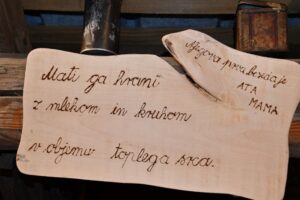 Mati ga hrani
z mlekom in kruhom
v objemu toplega srca.
Njegova prva beseda je
ATA
MAMA